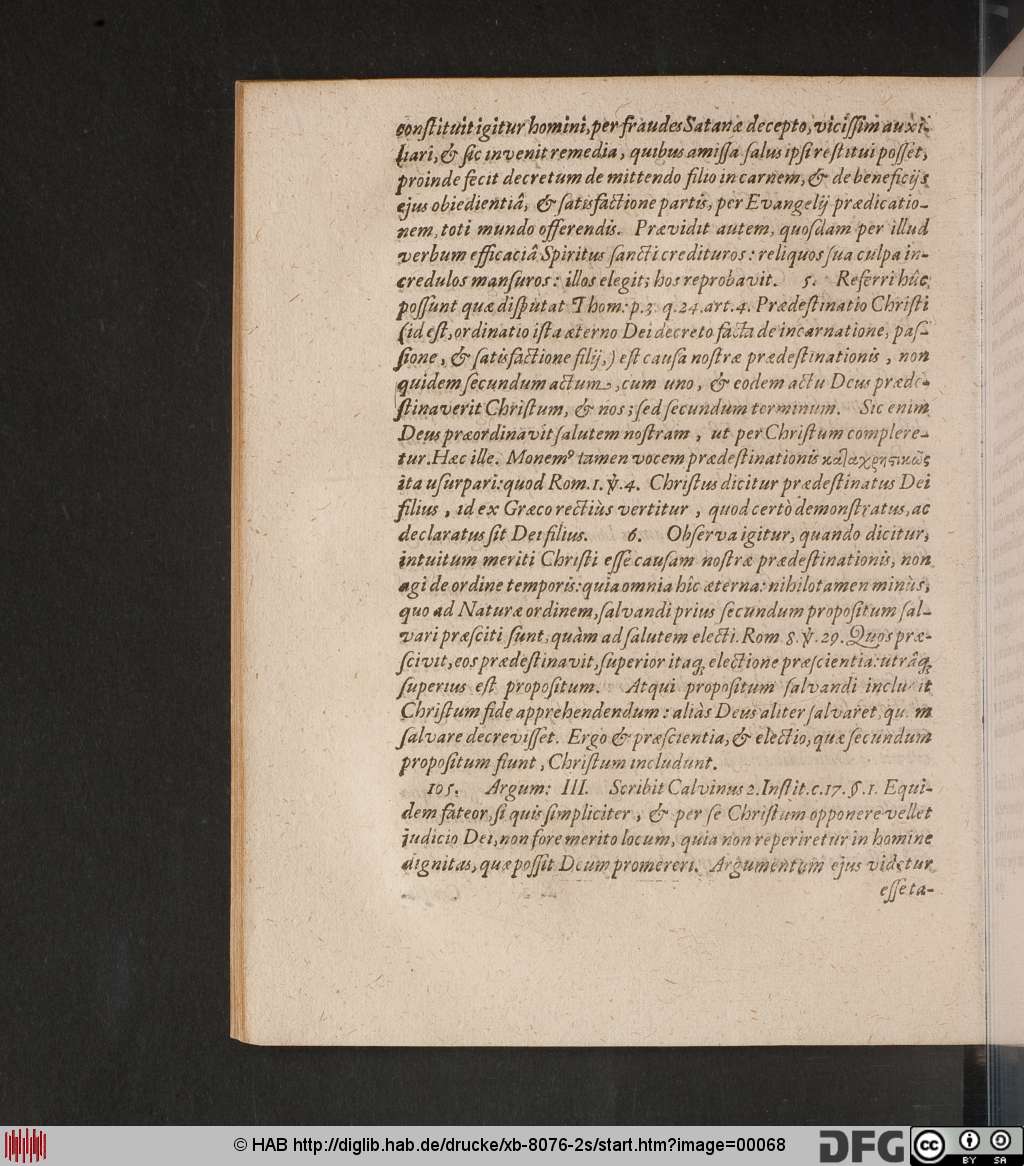 constituit igitur homini, per fraudes Satanæ decepto, vicissim auxi-
liari, & sic invenit remedia, quibus amissa salus ipsi restitui posset,
proinde fecit decretum de mittendo filio in carnem, & de beneficijs
ejus obiedientiâ, & satisfactione partis, per Evangelij prædicatio-
nem, toti mundo offerendis. Prævidit autem, quosdam per illud
verbum efficaciâ Spiritus sancti credituros: reliquos sua culpa in-
credulos mansuros: illos elegit; hos reprobavit. 5. Referri hûc
possunt quæ disputat Thom: p.3. q.24. art.4. Prædestinatio Christi
(id est, ordinatio ista æterno Dei decreto facta de incarnatione, pas-
sione, & satisfactione filij,) est causa nostræ prædestinationis, non
quidem secundum actum, cum uno, & eodem actu Deus præde-
stinaverit Christum, & nos; sed secundum terminum. Sic enim
Deus præordinavit salutem nostram, ut per Christum complere-
tur. Hæc ille. Monemꝰ tamen vocem prædestinationis καταχρηστικῶς
ita usurpari: quod Rom.1. ℣.4. Christus dicitur prædestinatus Dei
filius, id ex Græco rectiùs vertitur, quod certò demonstratus, ac
declaratus sit Dei filius. 6. Observa igitur, quando dicitur,
intuitum meriti Christi esse causam nostræ prædestinationis, non
agi de ordine temporis: quia omnia hîc æterna: nihilotamen minùs,
quo ad Naturæ ordinem, salvandi prius secundum propositum sal-
vari præsciti sunt, quàm ad salutem electi. Rom 8. ℣. 29. Quos præ-
scivit, eos prædestinavit, superior itaq; electione præscientia: utrâq;
superius est propositum. Atqui propositum salvandi inclu it
Christum fide apprehendendum: aliàs Deus aliter salvaret, qu m
salvare decrevisset. Ergo & præscientia, & electio, quæ secundum
propositum fiunt, Christum includunt.
105. Argum: III. Scribit Calvinus 2. Instit. c.17. §. 1. Equi-
dem fateor, si quis simpliciter, & per se Christum opponere vellet
judicio Dei, non fore merito locum, quia non reperiretur in homine
dignitas, quæ possit Deum promereri. Argumentum ejus videtur
esse ta-
© HAB http://diglib.hab.de/drucke/xb-8076-2s/start.htm?image=00068
DFG
cc
BY SA